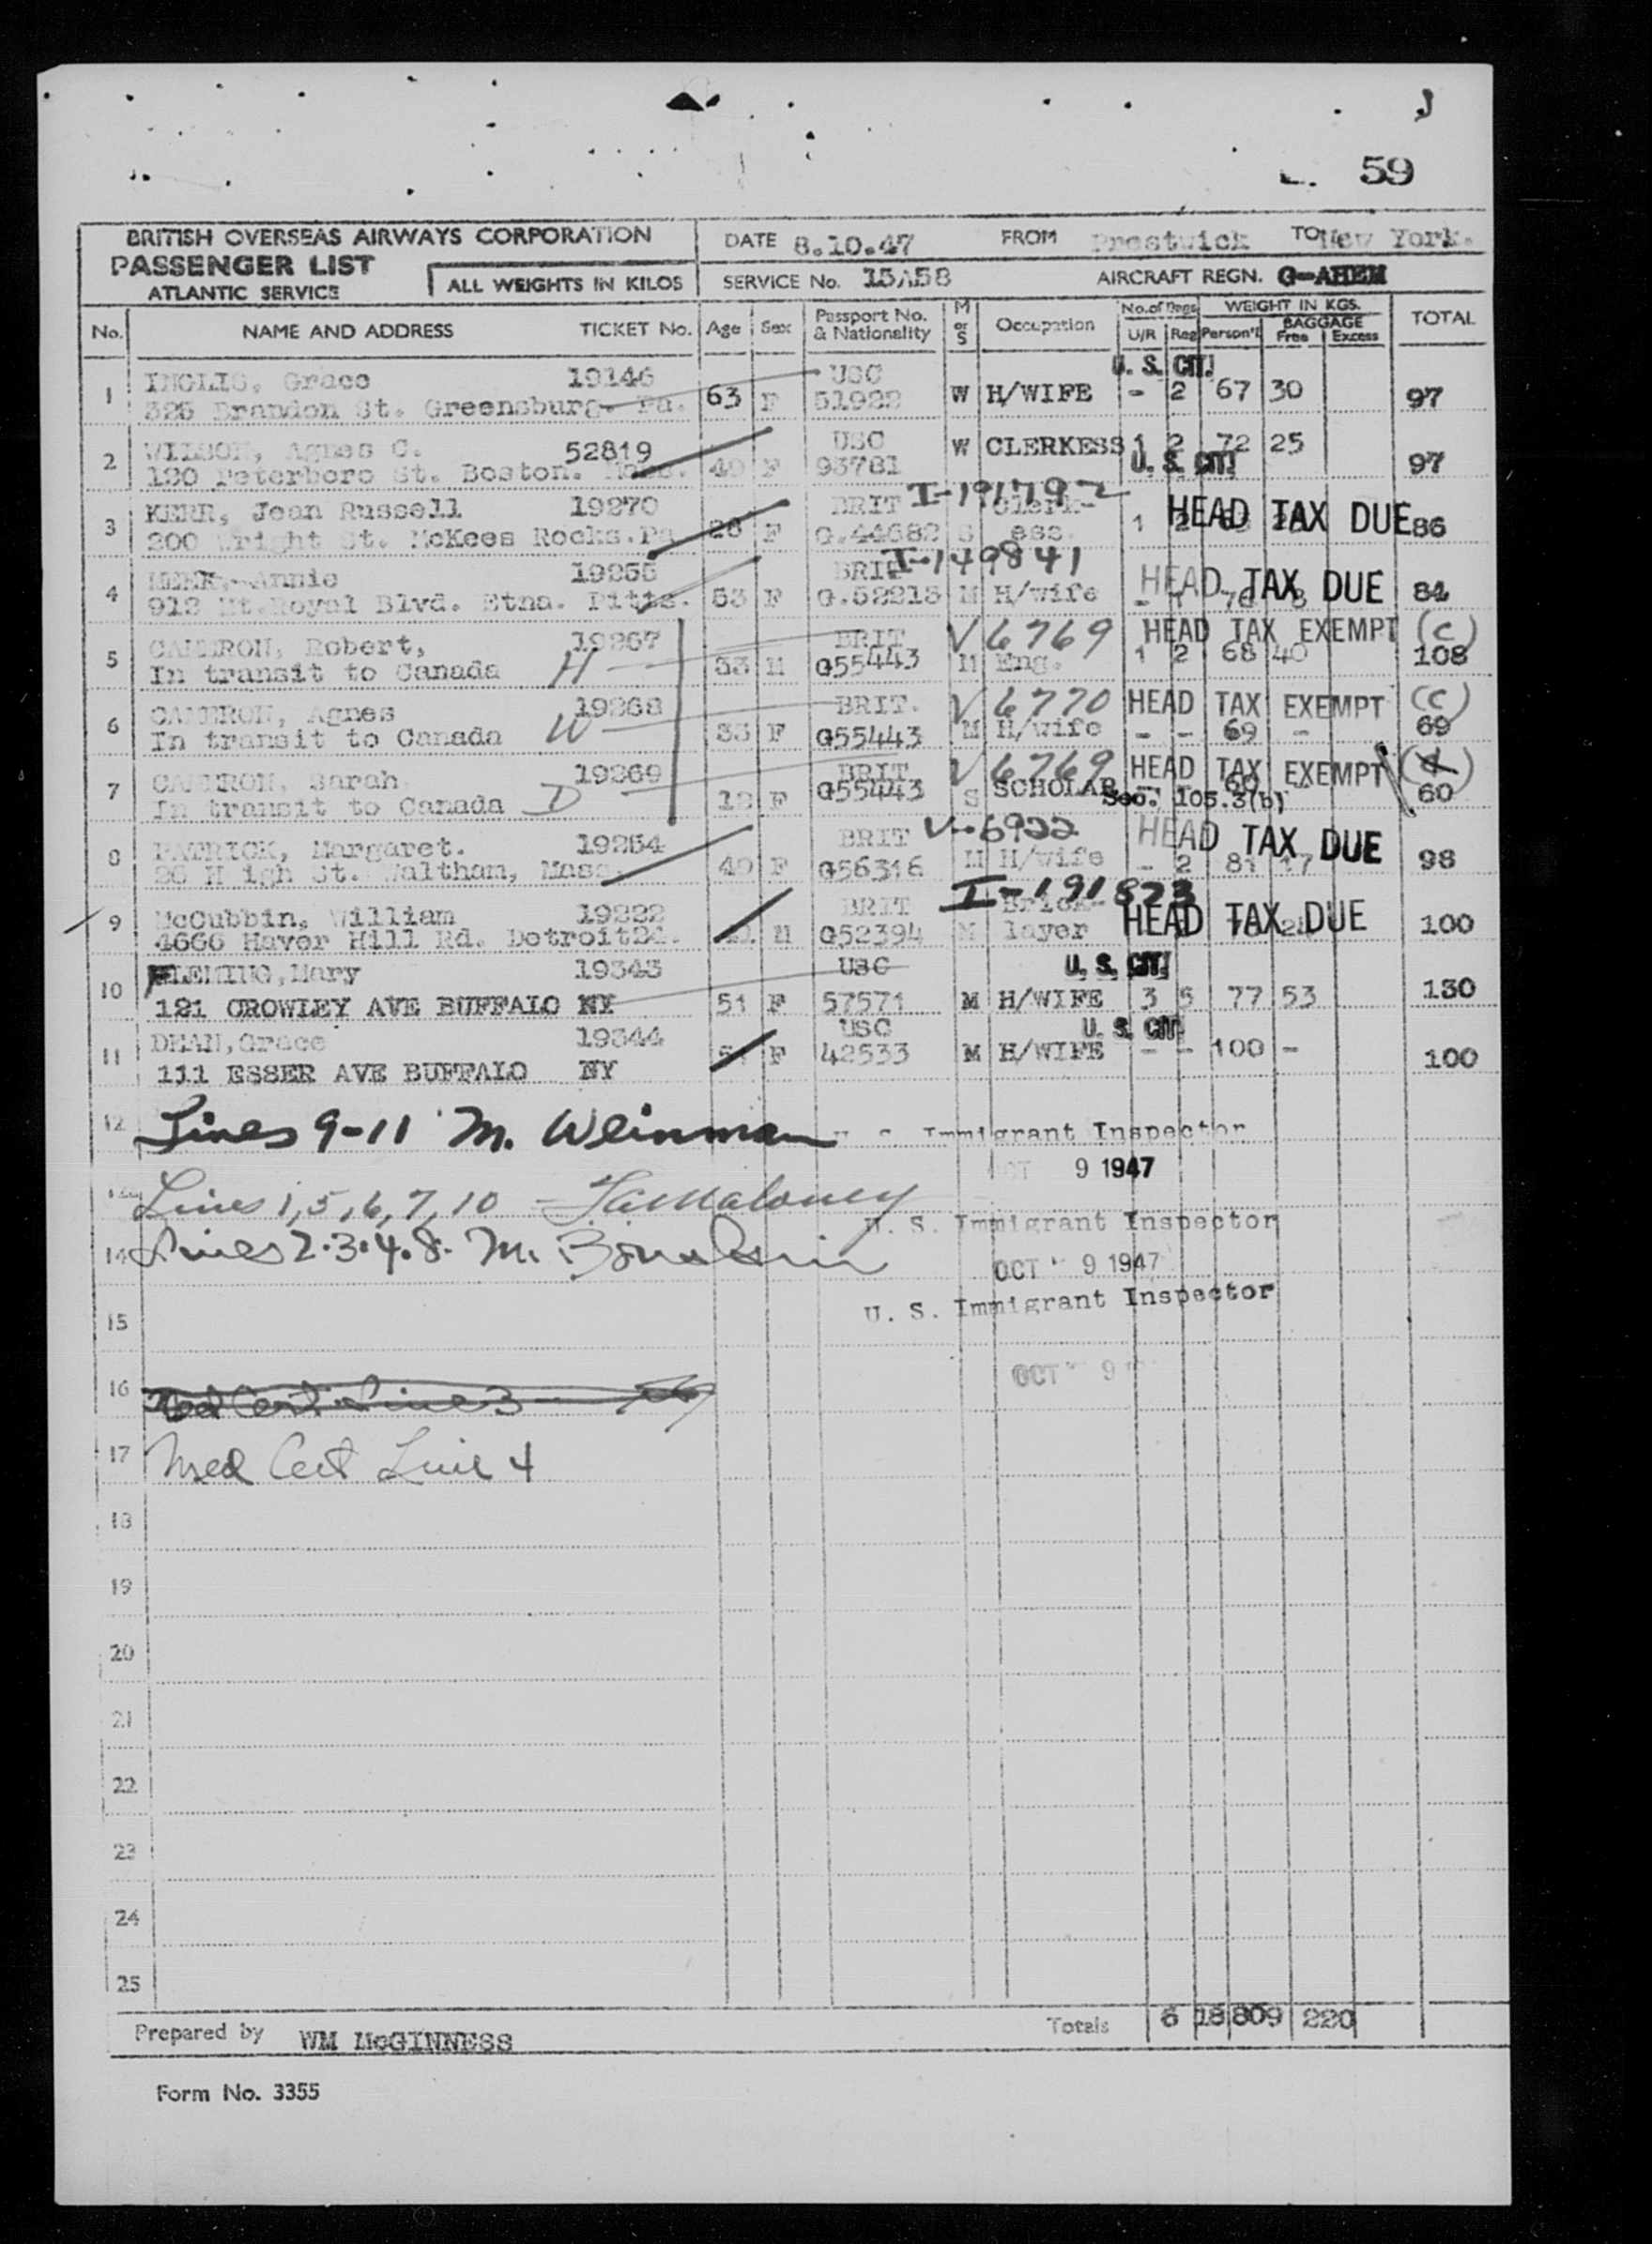 59
BRITISH OVERSEAS AIRWAYS CORPORATION
PASSENGER LIST
ATLANTIC SERVICE
ALL WEIGHTS IN KILOS
DATE 8.10.47 FROM Prestwick TO New York.
SERVICE No. 15A58 AIRCRAFT REGN. G-AHEM
No. NAME AND ADDRESS TICKET No. Age Sex Passport No. & Nationality M or S Occupation No. of Pkgs U/R Reg WEIGHT IN KGS. Person'l BAGGAGE Free Excess TOTAL
U. S. CIT.
1 INGLIS, Grace 19146 USC
325 Brandon St. Greensburg. Pa. 63 F 51922 W H/WIFE - 2 67 30 97
2 WILSON, Agnes C. 52819 USC W CLERKESS 1 2 72 25
120 Peterboro St. Boston. Mass. 40 F 93781 U. S. CIT. 97
3 KERR, Jean Russell 19270 BRIT I-191792 Clerk-
200 Wright St. McKees Rocks. Pa 26 F G.44682 S ess. 1 2 HEAD TAX DUE 86
4 Annie 19255 BRIT I-149841
912 Mt.Royal Blvd. Etna. Pitts. 53 F G.52213 M H/wife - 1 76 8 HEAD TAX DUE 84
5 CAMERON, Robert, 19267 BRIT V6769 HEAD TAX EXEMPT (C)
In transit to Canada H 33 M G55443 M Eng. 1 2 68 40 108
6 CAMERON, Agnes 19268 BRIT. V6770 HEAD TAX EXEMPT (C)
In transit to Canada W 33 F G55443 M H/wife - - 69 - 69
7 CAMERON, Sarah 19269 BRIT V6769 HEAD TAX EXEMPT
In transit to Canada D 12 F G55443 S SCHOLAR - - 60 - 60
Sec. 105.3(b)
8 PATRICK, Margaret. 19254 BRIT V-6922 HEAD TAX DUE
28 H igh St. Waltham, Mass. 40 F G56316 M H/wife - 2 81 17 98
9 McCubbin, William 19222 BRIT I-191823 Brick-
4666 Haver Hill Rd. Detroit24. M G52394 M layer HEAD TAX DUE 100
10 FLEMING, Mary 19343 USC U. S. CIT.
121 CROWLEY AVE BUFFALO NY 51 F 57571 M H/WIFE 3 5 77 53 130
11 DEAN, Grace 19344 USC U. S. CIT.
111 ESSER AVE BUFFALO NY F 42533 M H/WIFE - - 100 - 100
12 Lines 9-11 M. Weinman U. S. Immigrant Inspector
OCT 9 1947
13 Lines 1,5,6,7,10 - Maloney
U. S. Immigrant Inspector
14 Lines 2.3.4.8. M.
OCT 9 1947
15 U. S. Immigrant Inspector
16 Med Cert Line 3 OCT 9
17 Med Cert Line 4
18
19
20
21
22
23
24
25
Prepared by WM McGINNESS Totals 6 18 809 220
Form No. 3355